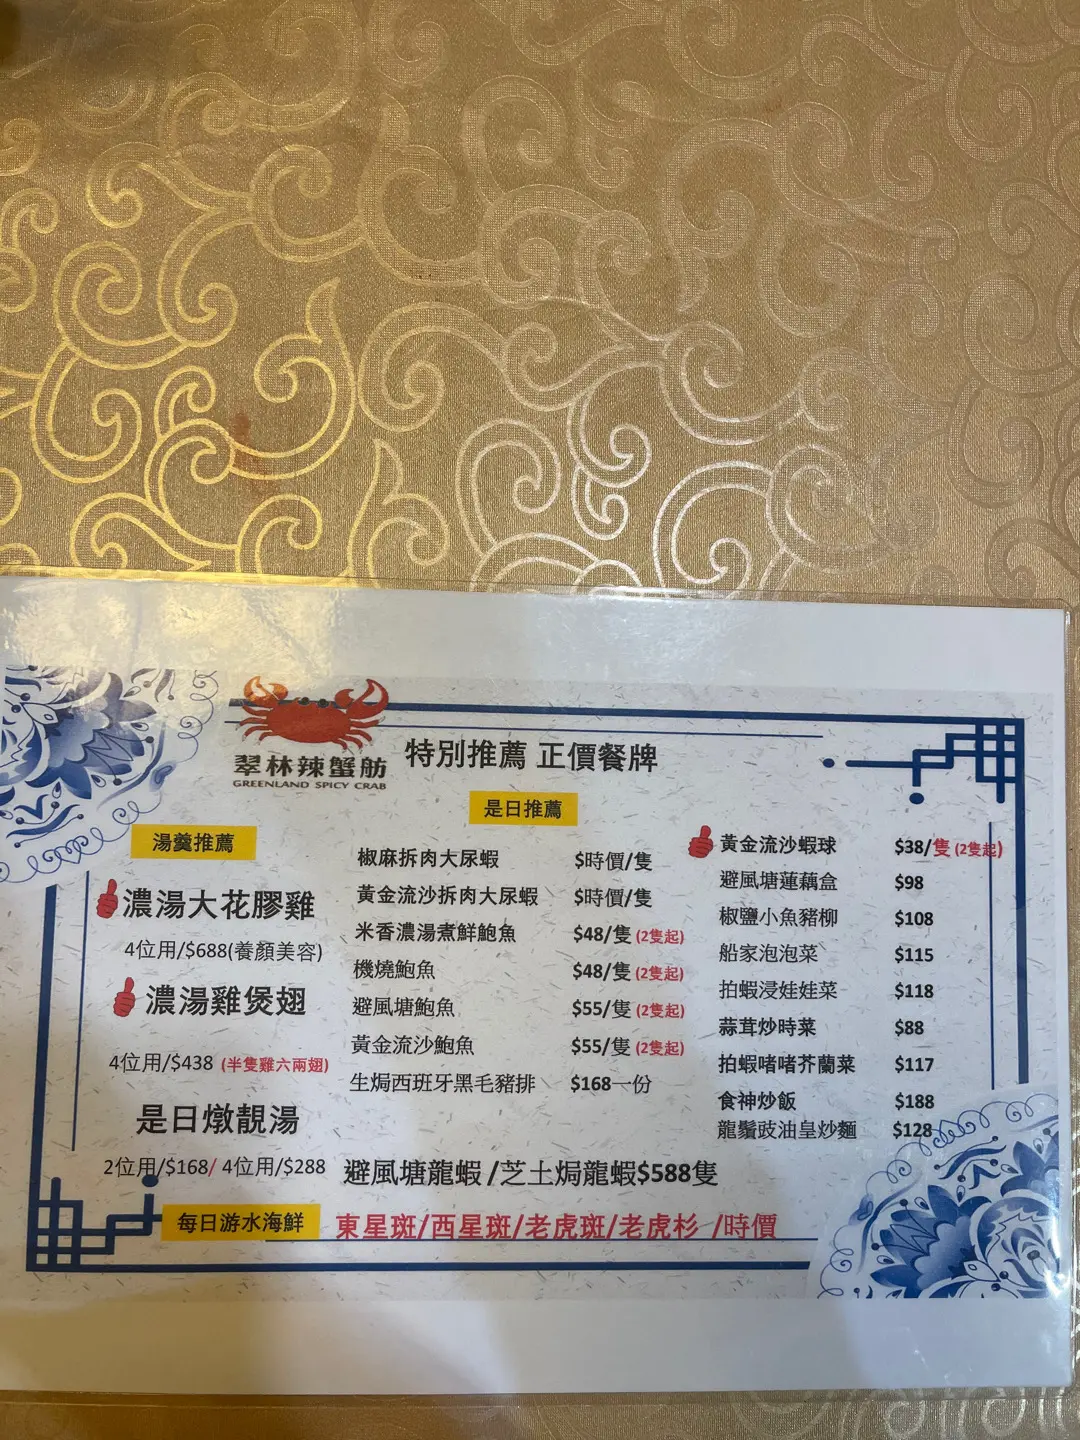 翠林辣蟹舫
GREENLAND SPICY CRAB
特別推薦 正價餐牌
湯羹推薦
濃湯大花膠雞
4位用/$688(養顏美容)
濃湯雞煲翅
4位用/$438 (半隻雞六兩翅)
是日燉靚湯
2位用/$168/ 4位用/$288
是日推薦
椒麻拆肉大尿蝦 $時價/隻
黃金流沙拆肉大尿蝦 $時價/隻
米香濃湯煮鮮鮑魚 $48/隻 (2隻起)
機燒鮑魚 $48/隻 (2隻起)
避風塘鮑魚 $55/隻 (2隻起)
黃金流沙鮑魚 $55/隻 (2隻起)
生焗西班牙黑毛豬排 $168一份
黃金流沙蝦球 $38/隻 (2隻起)
避風塘蓮藕盒 $98
椒鹽小魚豬柳 $108
船家泡泡菜 $115
拍蝦浸娃娃菜 $118
蒜茸炒時菜 $88
拍蝦啫啫芥蘭菜 $117
食神炒飯 $188
龍鬚豉油皇炒麵 $128
避風塘龍蝦 /芝士焗龍蝦$588隻
每日游水海鮮 東星斑/西星斑/老虎斑/老虎杉 /時價